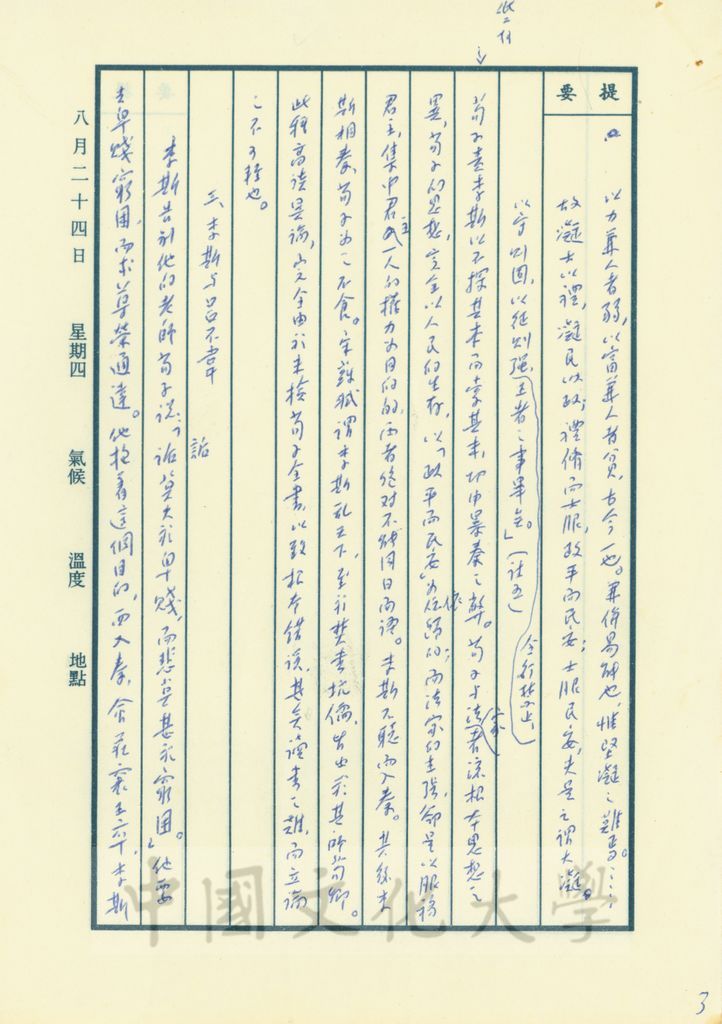 提要
以力兼人者弱,以富兼人者貧,古今一也。兼併易能也,惟堅凝之難焉。……
故凝士以禮,凝民以政;禮脩而士服,政平而民安;士服民安,夫是之謂大凝。
以守則固,以征則强,王者之事畢矣。」(註五)
荀子責李斯以不探其本而索其末,切中暴秦之弊。荀子與法家者流根本思想之
異,荀子的思想,完全以人民的生存,以「政平而民安」為依歸的;而法家的主張,卻是以服務
君主,集中君主一人的權力為目的的,兩者絕对不能同日而語。李斯不聽而入秦。其後李
斯相秦,荀子為之不食。宋蘇軾謂李斯乱天下,至於焚書坑儒,皆出於其師荀卿。
此種高談異論,完全由於未檢荀子全書,以致根本錯誤。其矣讀書之難,而立論
之不可輕也。
三、李斯與呂不韋
李斯告别他的老師荀子說:「詬莫大於卑賤,而悲莫甚於窮困。」他要
去卑賤窮困,而求尊榮通達。他抱着這個目的,而入秦,會莊襄王卒,李斯
詬
八月二十四日 星期四 氣候 溫度 地點
中國文化大學
3